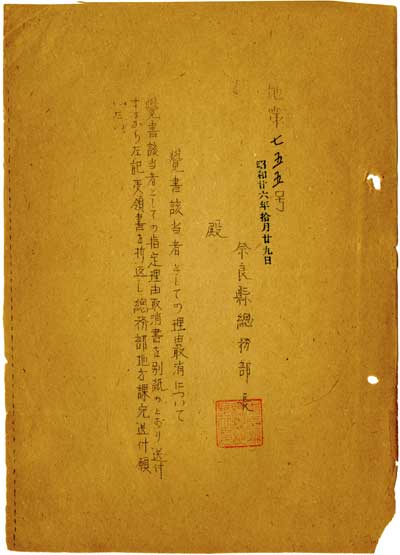 地第七五五号
昭和廿六年拾月廿九日
奈良縣總務部長
殿
覺書該当者としての理由取消について
覺書該当者としての指定理由取消書を別紙のとおり送付
するから左記受領書を折返し總務部地方課宛送付願
いたい。